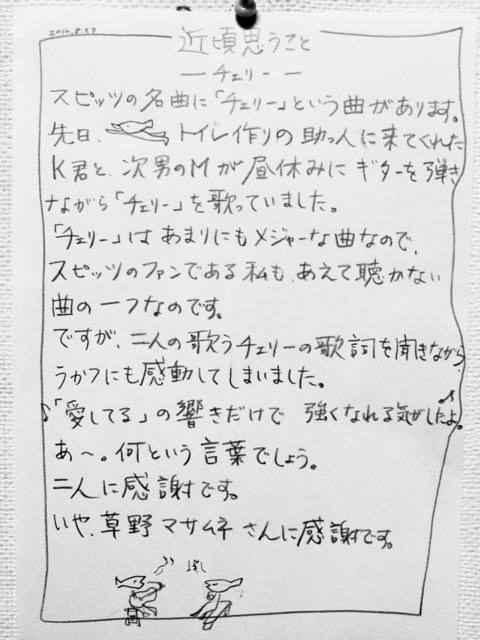 近頃思うこと
ーチェリーー
スピッツの名曲に「チェリー」という曲があります。
先日、トイレ作りの助っ人に来てくれた
K君と、次男のMが昼休みにギターを弾き
ながら「チェリー」を歌っていました。
「チェリー」はあまりにもメジャーな曲なので、
スピッツのファンである私も、あえて聴かない
曲の一つなのです。
ですが、二人の歌うチェリーの歌詞を聞きながら
うかつにも感動してしまいました。
♪「愛してる」の響きだけで 強くなれる気がしたよ♪。
あ〜。何という言葉でしょう。
二人に感謝です。
いや、草野マサムネさんに感謝です。